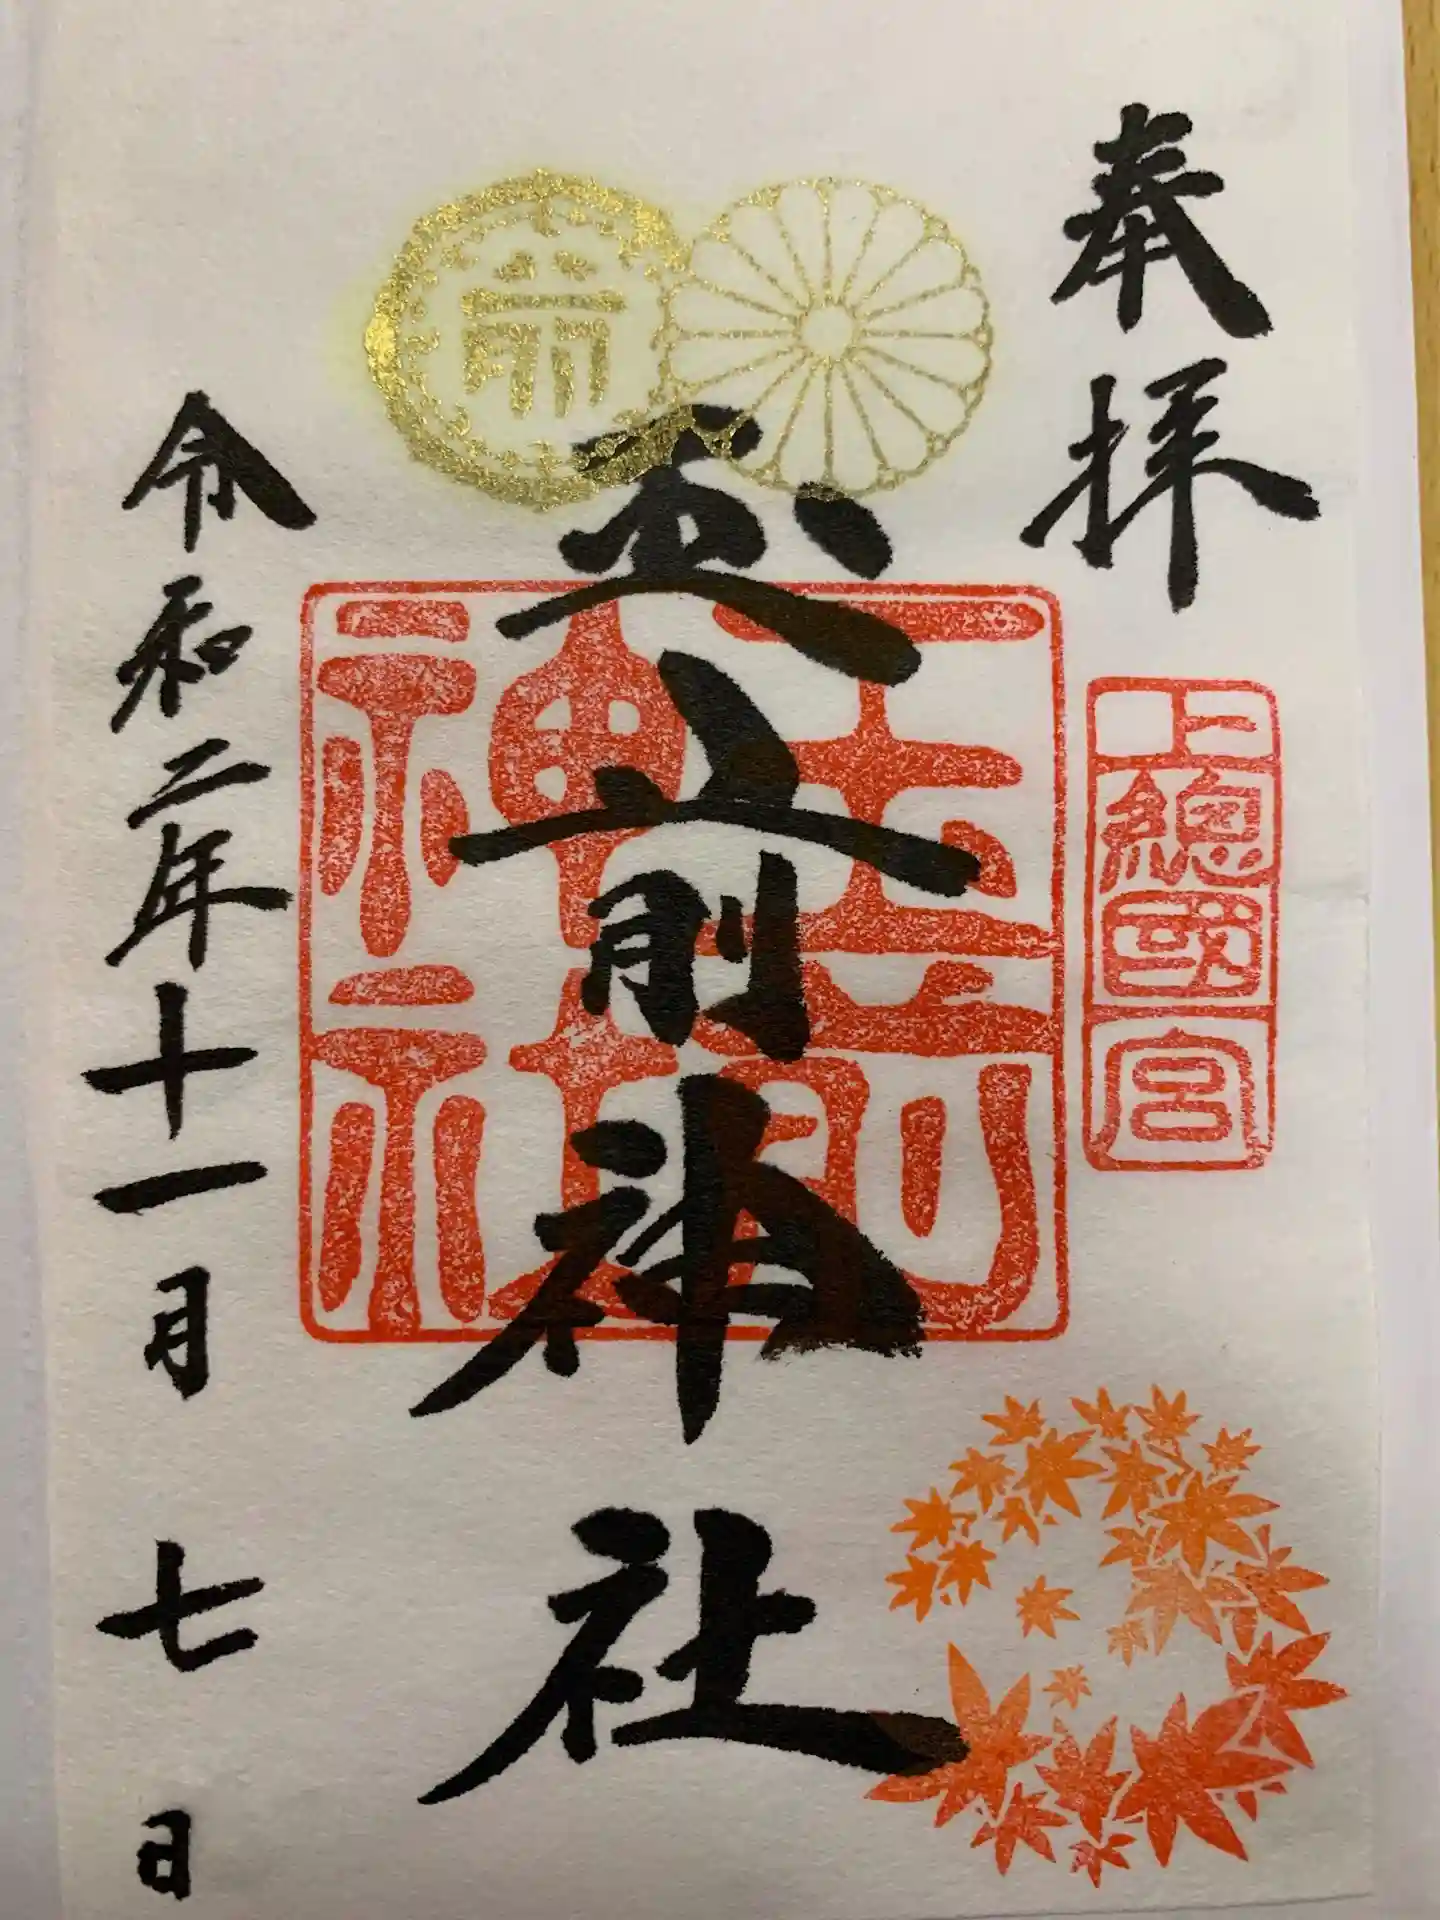 奉拝
上總國一宮
玉前神社
玉前
神社
令和二年十一月七日